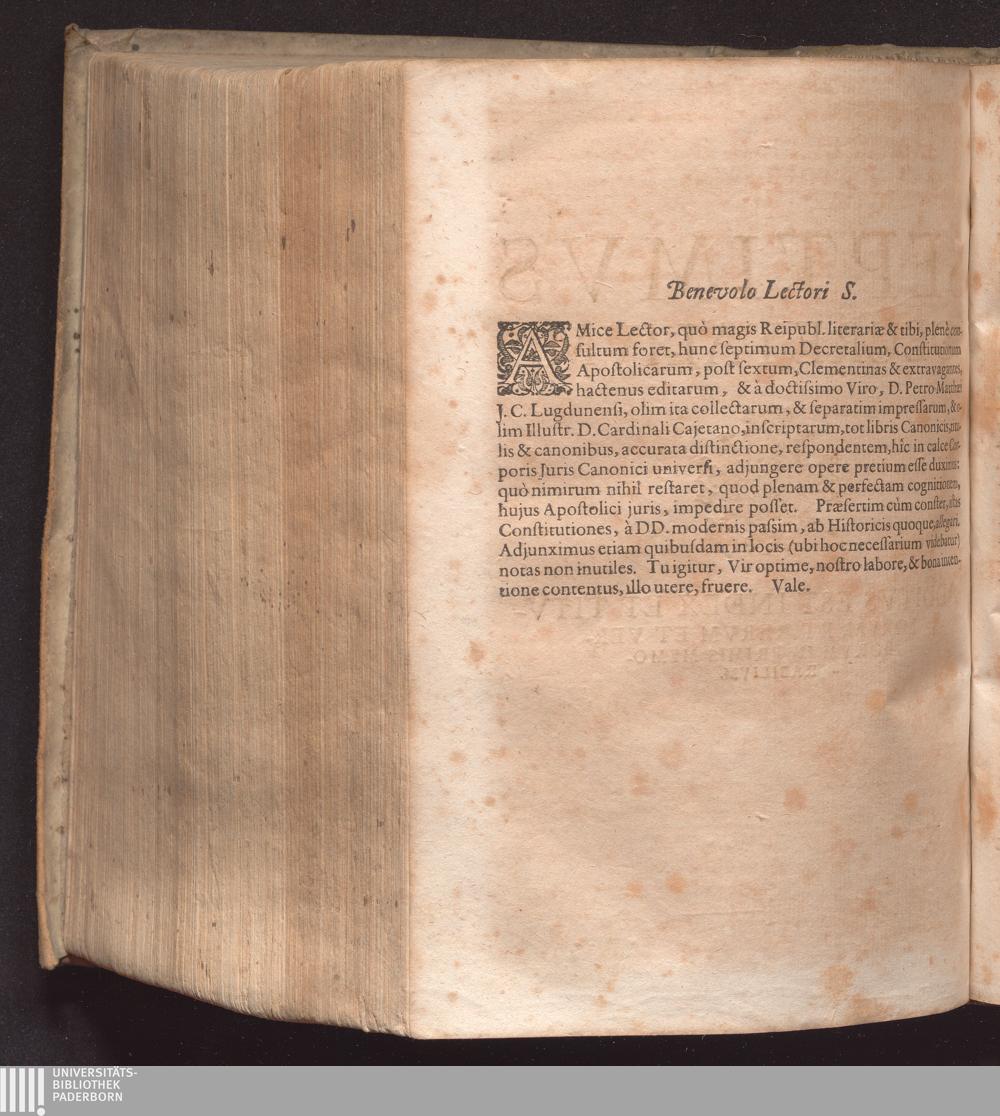 Benevolo Lectori S.
AMice Lector, quò magis Reipubl. literariæ & tibi, plenè con-
ſultum foret, hunc ſeptimum Decretalium, Conſtitutionum
Apoſtolicarum, poſt ſextum, Clementinas & extravagantes,
hactenus editarum, & à doctiſsimo Viro, D. Petro Matthæi
J. C. Lugdunenſi, olim ita collectarum, & ſeparatim impreſſarum, & o-
lim Illuſtr. D. Cardinali Cajetano, inſcriptarum, tot libris Canonicis, titu-
lis & canonibus, accurata diſtinctione, reſpondentem, hîc in calce Cor-
poris Juris Canonici univerſi, adjungere opere pretium eſſe duximus:
quò nimirum nihil reſtaret, quod plenam & perfectam cognitionem,
hujus Apoſtolici juris, impedire poſſet. Præſertim cùm conſtet,
Conſtitutiones, à DD. modernis paſsim, ab Hiſtoricis quoque, allegari.
Adjunximus etiam quibuſdam in locis (ubi hoc neceſſarium videbatur)
notas non inutiles. Tu igitur, Vir optime, noſtro labore, & bona inten-
tione contentus, illo utere, fruere. Vale.
UNIVERSITÄTS-
BIBLIOTHEK
PADERBORN